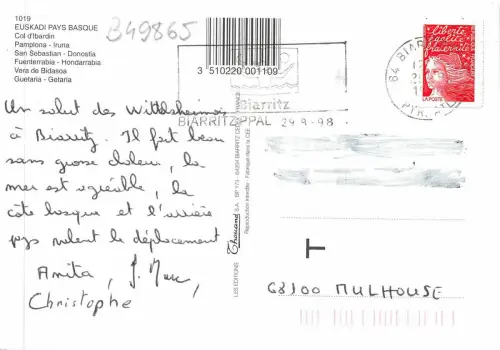 1019
EUSKADI PAYS BASQUE
Col d'Ibardin
Pamplona - Iruria
San Sebastian - Donostia
Fuenterrabia - Hondarrabia
Vera de Bidasoa
Guetaria - Getaria
B49865
3 510220 001109
Biarritz
BIARRITZ PPAL 24-9-98
64 BIARRITZ
PYR.
liberté
égalité
fraternité
LA POSTE
Un salut des Wittelsheimois
à Biarritz. Il fait beau
sans grosse chaleur, la
mer est agréable, la
côte basque et l'arrière
pays valent le déplacement
Anita, J. Marc,
Christophe
LES EDITIONS Thouand S.A. - BP 173 - 64204 BIARRITZ CEDEX FRANCE
Reproduction interdite - Fabriqué dans la CEE
T
68100 MULHOUSE